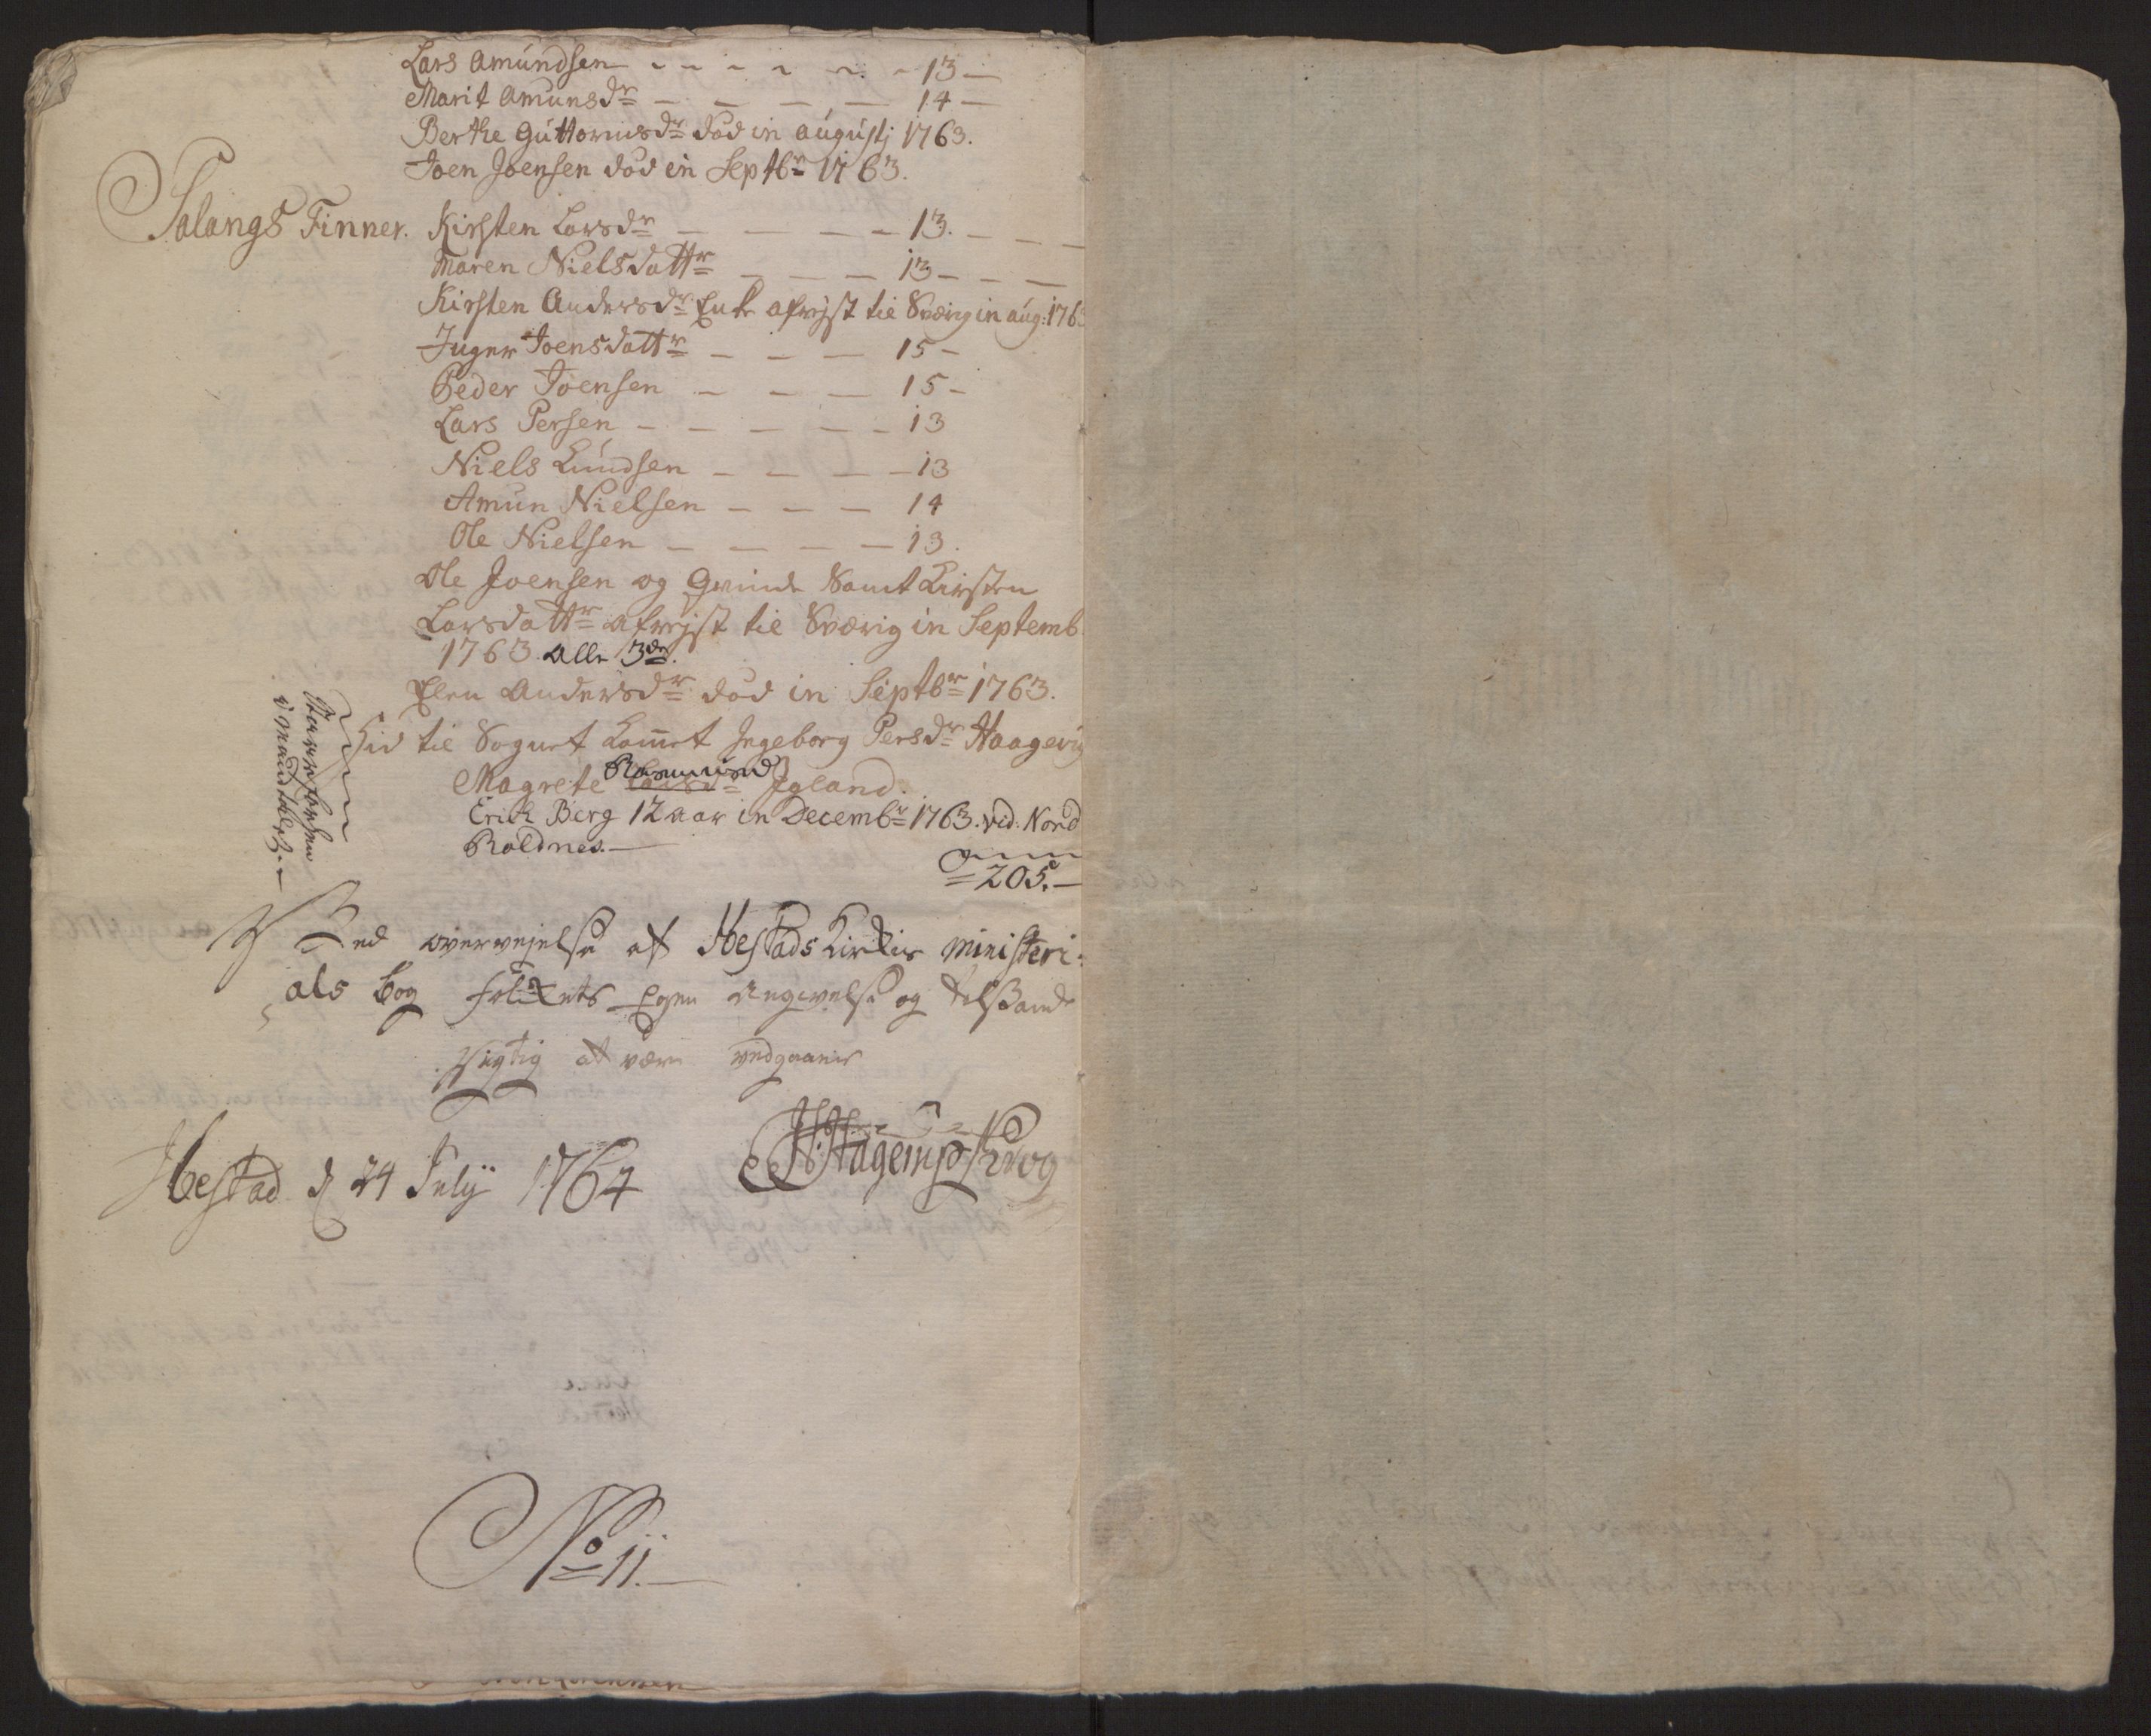 Lars Amundsen - - - - - - 13 -
Marit Amunsdr - - - - 14 -
Berthe Guttormsdr død in Augustj 1763.
Joen Joensen død in Septbr 1763.
Salangs Finner. Kirsten Larsdr - - - - - 13. - - -
Maren Nielsdattr - - - 13 - - -
Kirsten Andersdr Enke afrejst til Sværig in aug: 1763
Inger Joensdattr - - - 15 -
Peder Joensen - - - 15 -
Lars Persen - - - - - 13
Niels Knudsen - - - - 13
Amun Nielsen - - - 14
Ole Nielsen - - - - 13.
Ole Joensen og Qvinde Samt Kirsten
Larsdattr afrejst til Sværig in Septemb
1763. Alle 3de.
Elen Andersdr død in Septbr 1763.
Hid til Sognet kommet Ingeborg Persdr Haagevig
Magrete Rasmusd Igland.
Erich Berg 12 Aar in Decembr 1763. vid. Nord
Roldnes. -
= 205. -
Ved overvejelse af Hestads Kirkes Ministeri:
als bog folkets Egen Angivelse og
Rigtig at være vedgaaes
Hestad d 24 Julij 1764
H: Hagerup Krog
No 11. -